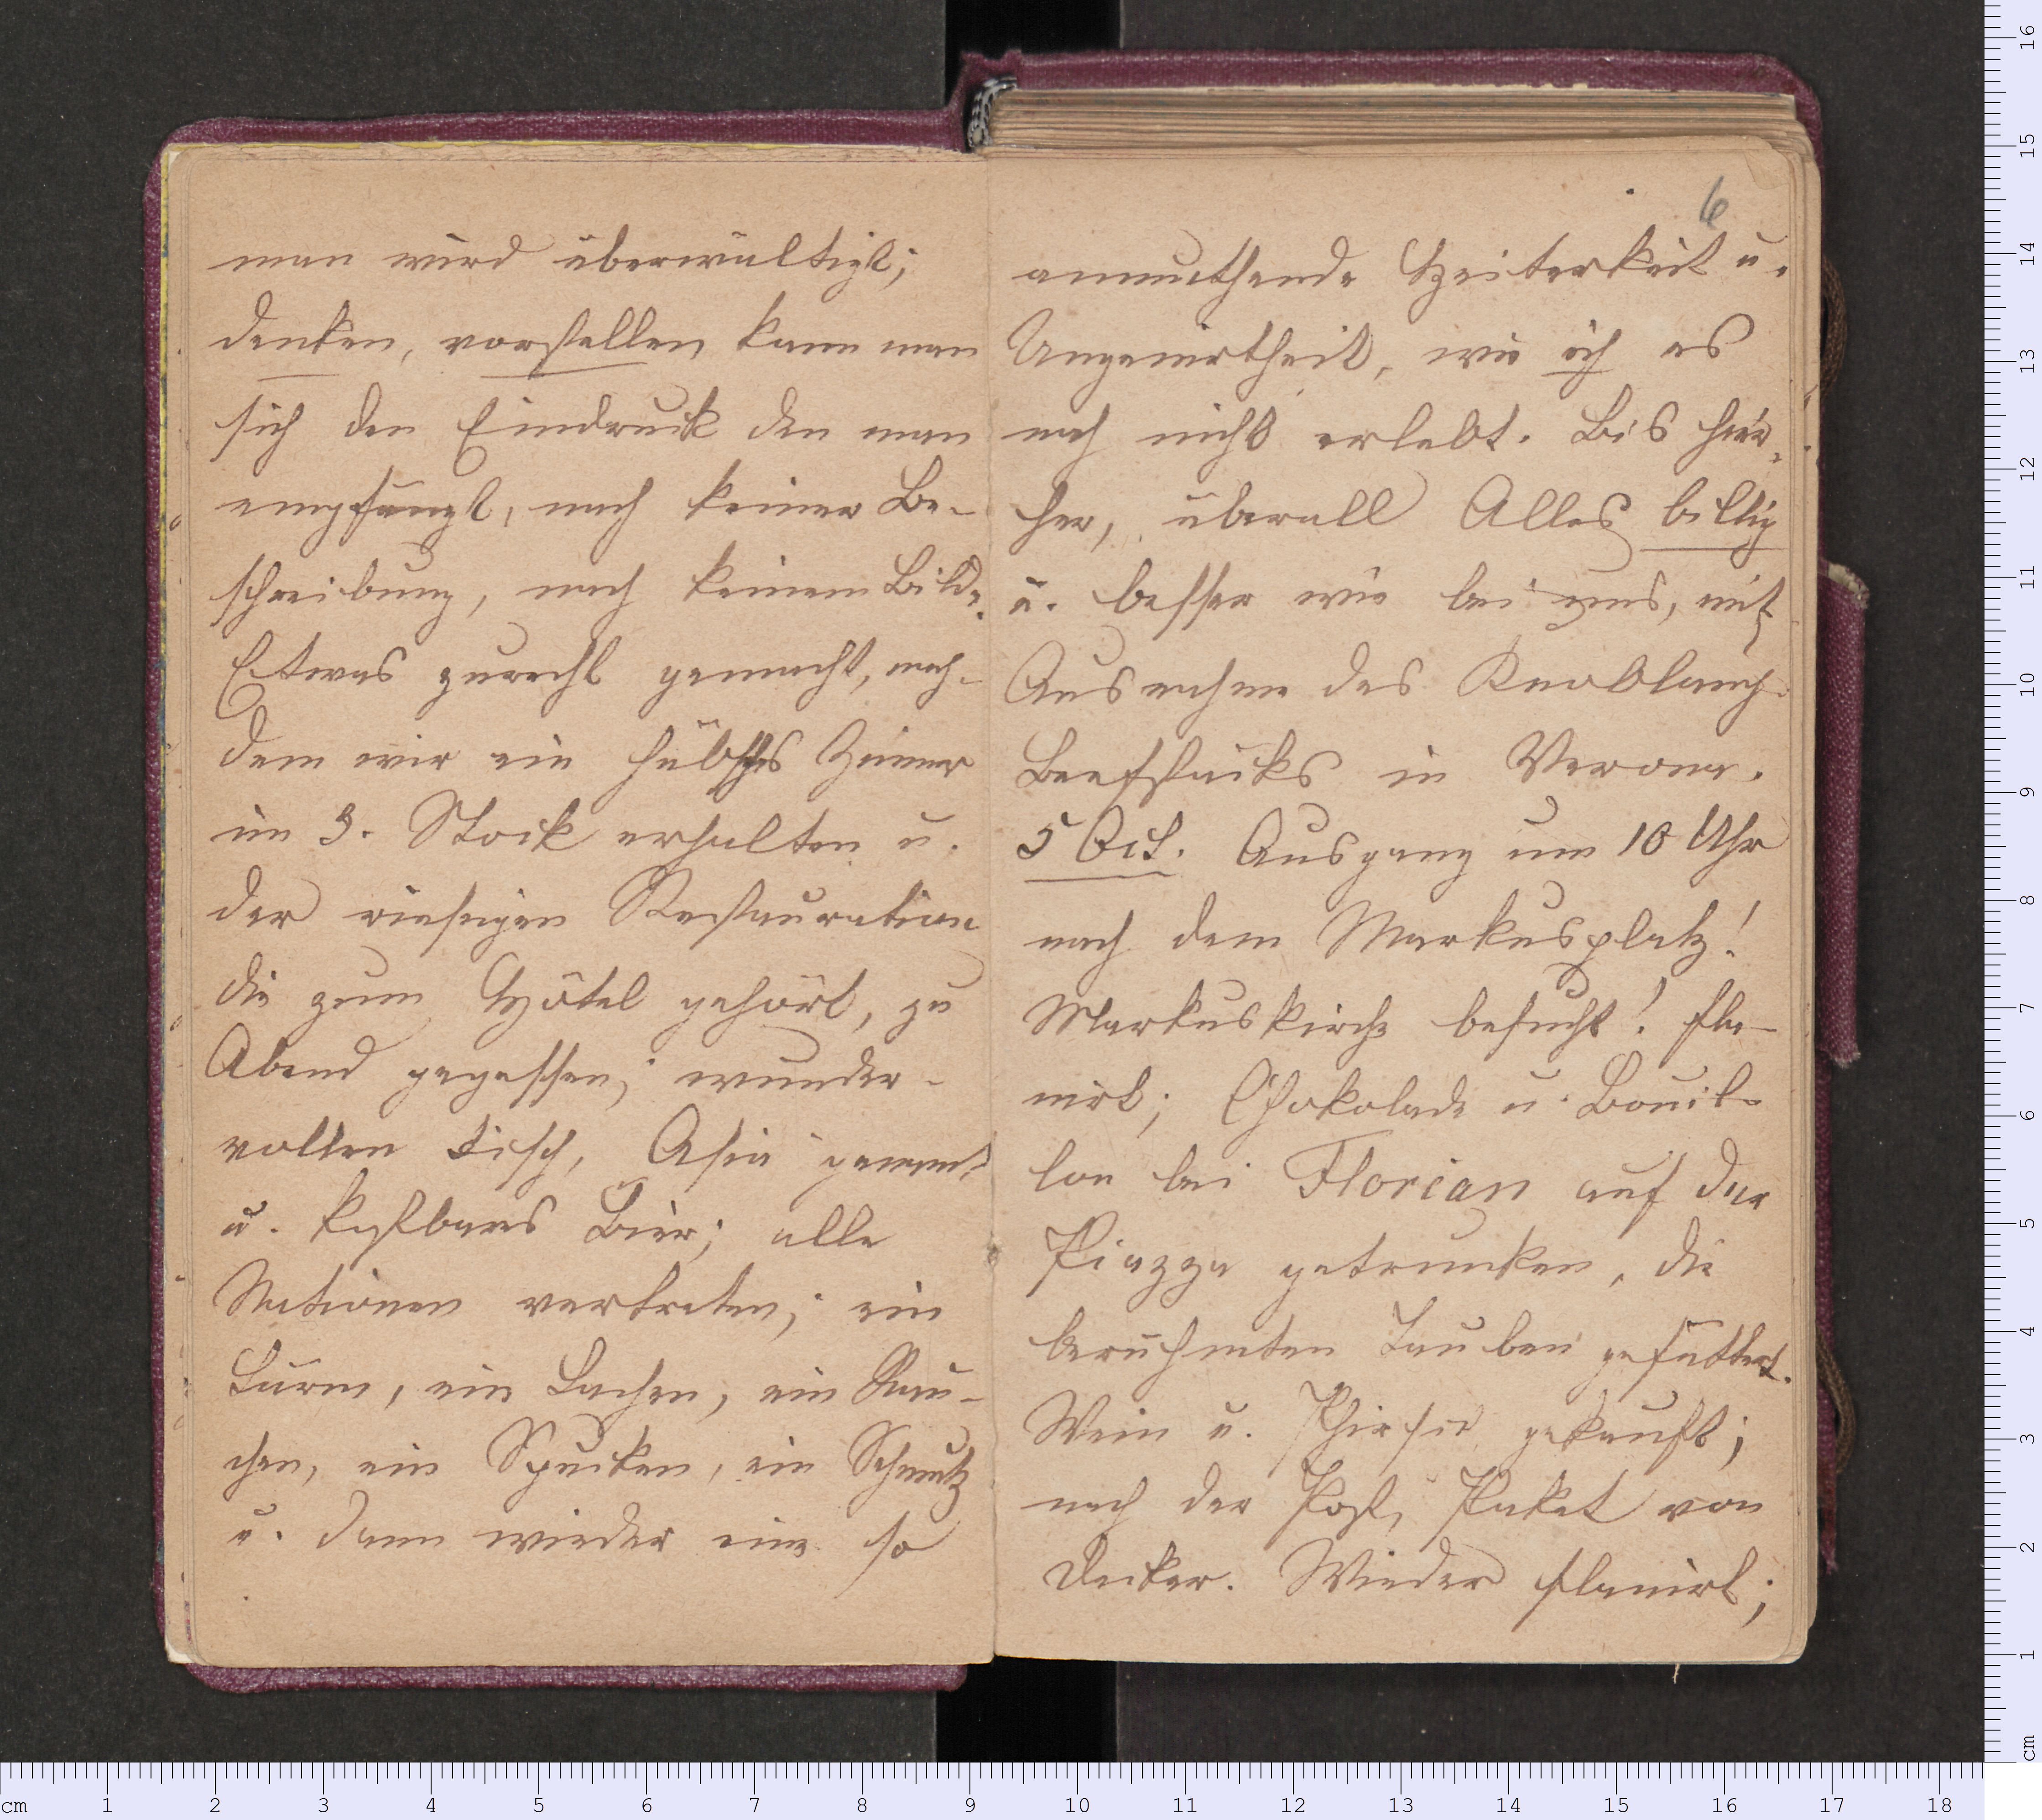 man wird überwältigt;
denken, vorstellen kann man
sich den Eindruck den man
empfängt, nach keiner Be-
schreibung, nach keinem Bilde.
Etwas zurecht gemacht, nach-
dem wir ein hübsches Zimer
im 3. Stock erhalten u.
der riesigen Restauration
die zum Hôtel gehört, zu
Abend gegessen; wunder-
vollen Fisch, genannt
u. kostbares Bier; alle
Nationen vertreten; ein
Lärm, ein Lachen, ein Rau-
chen, ein Spucken, ein Schmutz
u. dann wieder eine so
6
anmuthende Heiterkeit u.
Ungenirtheit, wie ich es
noch nicht erlebt. Bis hier-
her, überall Alles billig
u. besser wie bei uns, mit
Ausnahme des Knoblauch-
Beefstucks in Verona.
5 Oct. Ausgang um 10 Uhr
nach dem Markusplatz!
Markuskirche besucht! fla-
nirt; Chokolade u. Bouil-
lon bei Florian auf der
Piazza getrunken, die
berühmten Tauben gefüttert.
Wein u. gekauft;
nach der Post, Paket von
Decker. Wieder flanirt;